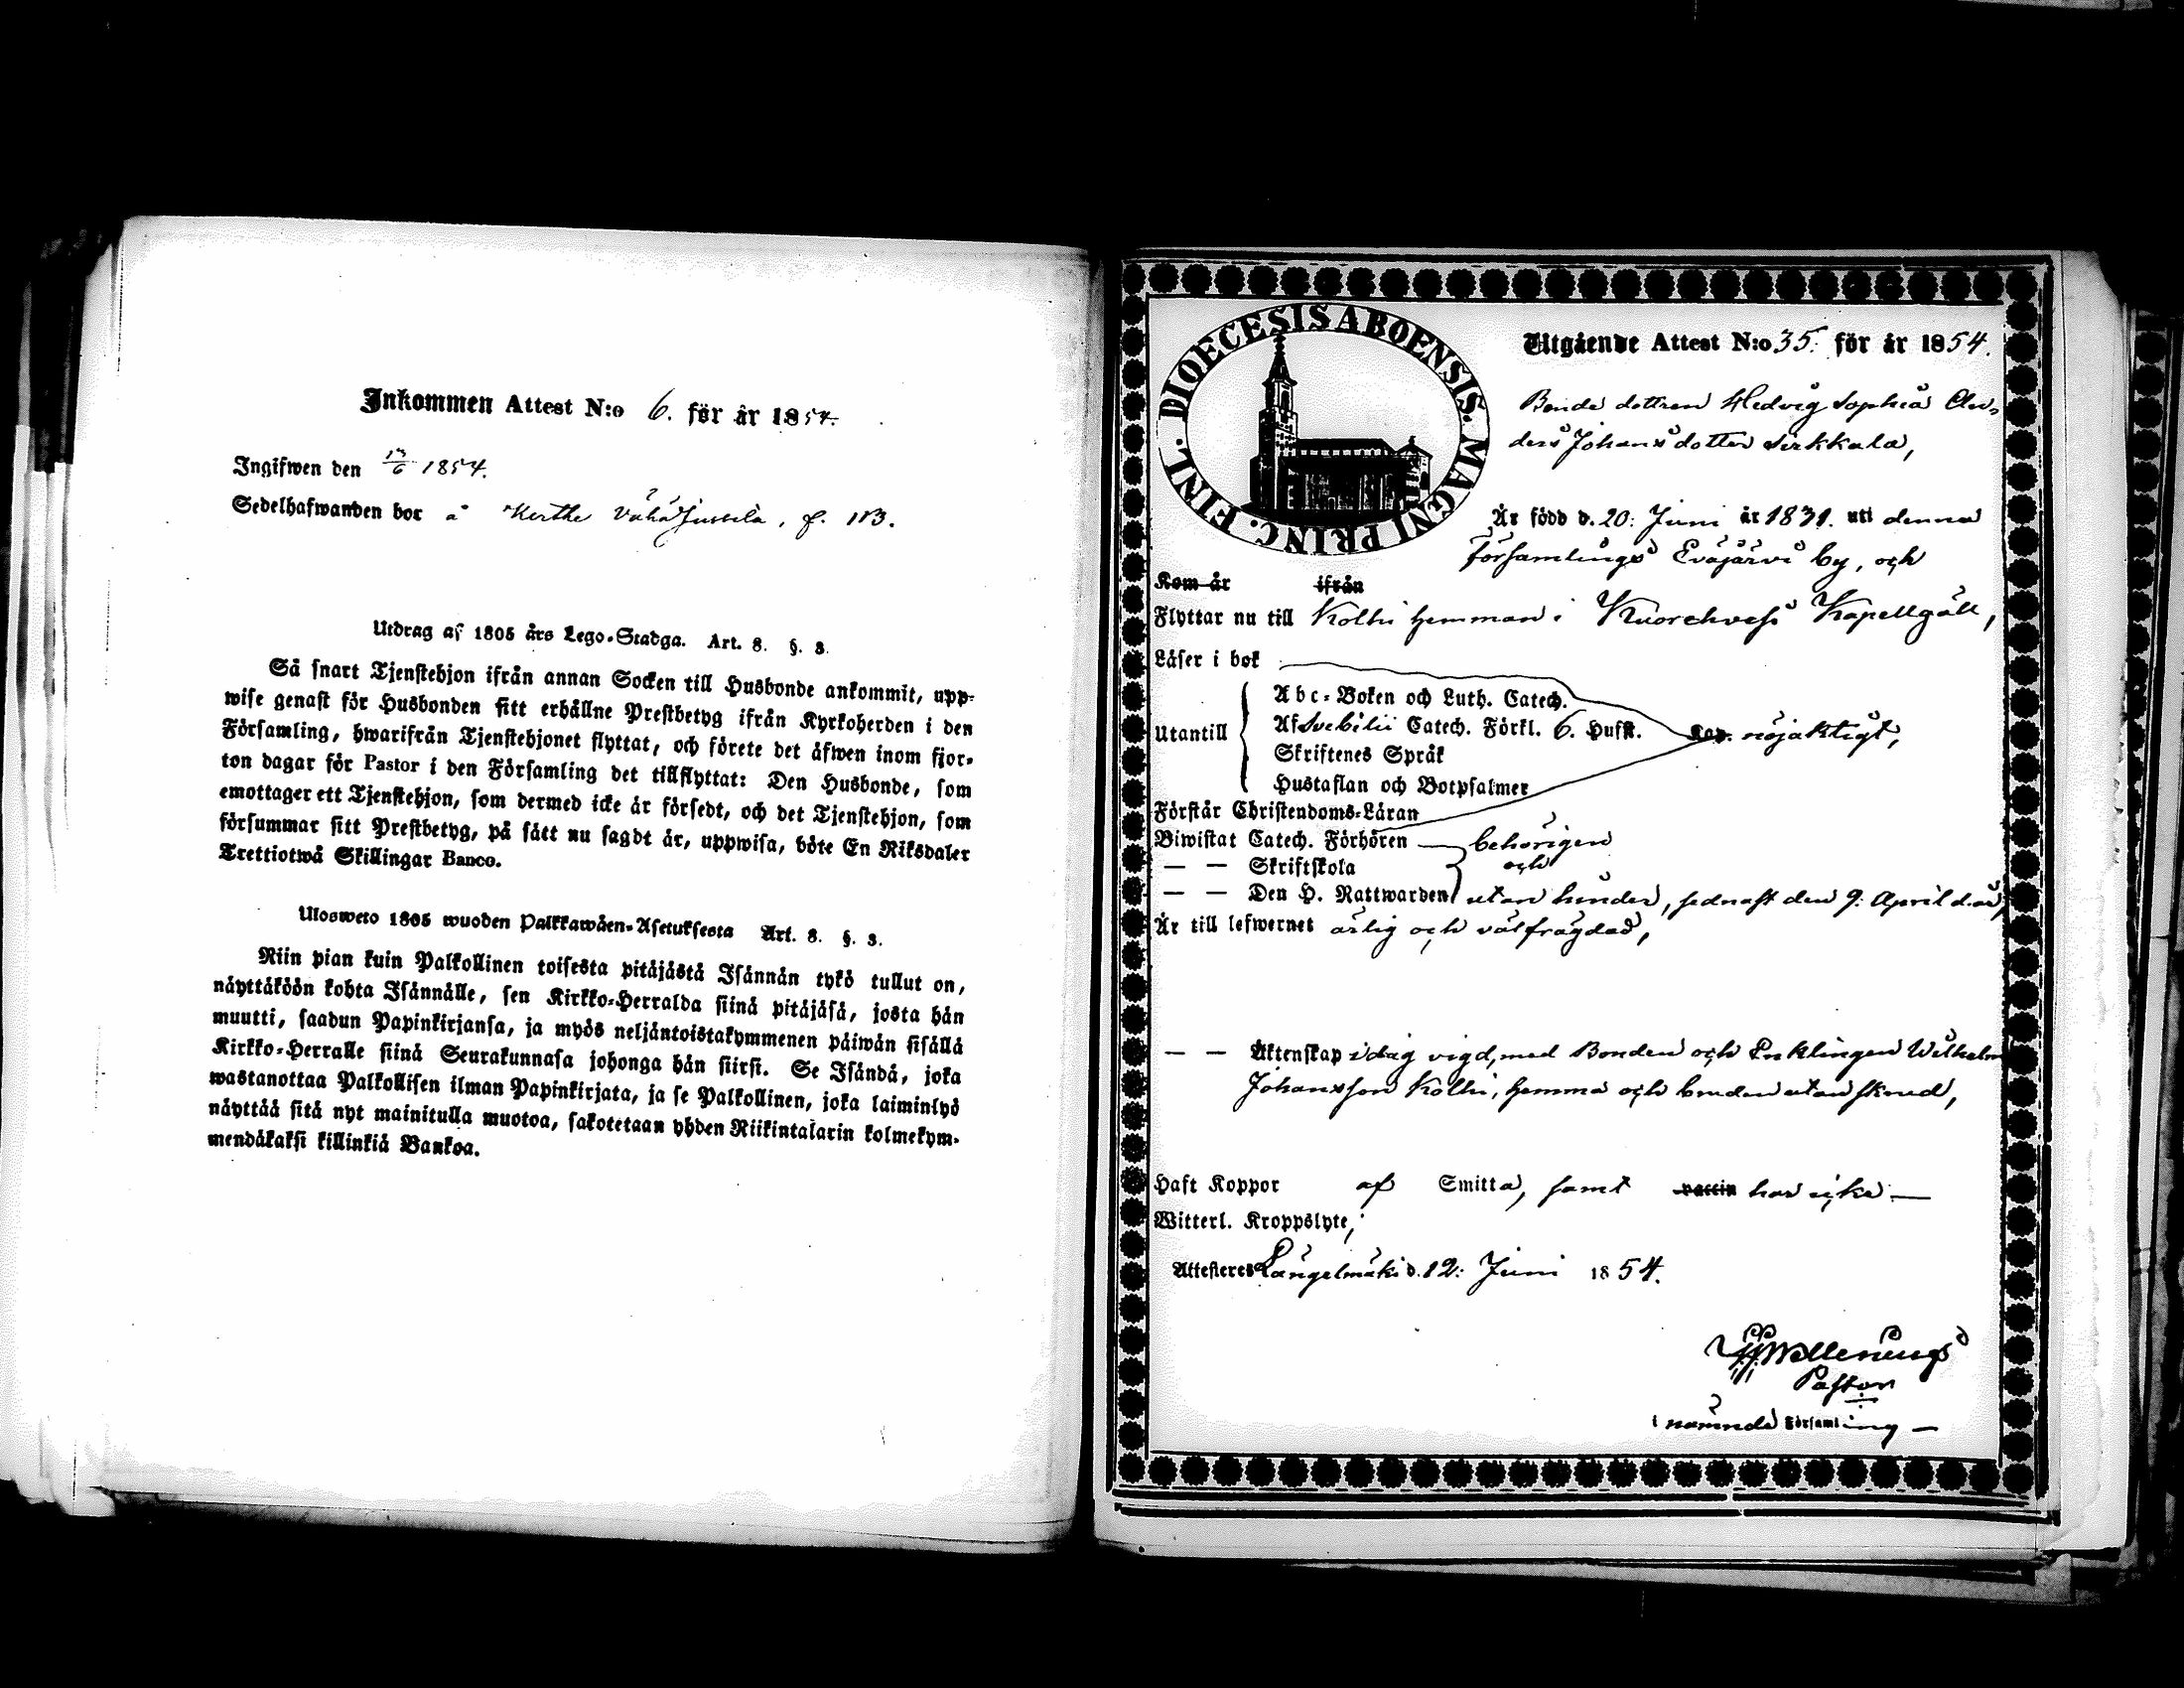 Inkommen Attest N:o 6. för år 1854.
Ingifwen den 13/6 1854.
Sedelhafwanden bor å Kerthe Vähä Jussila, f. 113.
Utdrag af 1805 års Lego-Stadga. Art. 8. §. 3.
Så snart Tjenstehjon ifrån annan Socken till Husbonde ankommit, upp-
wise genast för Husbonden sitt erhållne Prestbetyg ifrån Kyrkoherden i den
Församling, hwarifrån Tjenstehjonet flyttat, och förete det äfwen inom fjor-
ton dagar för Pastor i den Församling det tillflyttat: Den Husbonde, som
emottager ett Tjenstehjon, som dermed icke är försedt, och det Tjenstehjon, som
försummar sitt Prestbetyg, på sätt nu sagdt är, uppwisa, böte En Riksdaler
Trettiotwå Skillingar Banco.
Ulosweto 1805 wuoden Palkkawäen-Asetuksesta Art. 8. §. 3.
Niin pian kuin Palkollinen toisesta pitäjästä Isännän tykö tullut on,
näyttäköön kohta Isännälle, sen Kirkko-Herralda siinä pitäjäsä, josta hän
muutti, saadun Papinkirjansa, ja myös neljäntoistakymmenen päiwän sisällä
Kirkko-Herralle siinä Seurakunnasa johonga hän siirsi. Se Isändä, joka
wastanottaa Palkollisen ilman Papinkirjata, ja se Palkollinen, joka laiminlyö
näyttää sitä nyt mainitulla muotoa, sakotetaan yhden Riikintalarin kolmekym-
mendäkaksi killinkiä Bankoa.
DIOECESIS ABOENSIS. MAGNI PRINC. FINL.
Utgående Attest N:o 35. för år 1854.
Bonde dottren Hedvig Sophia An-
ders Johansdotter Sirkkala,
Är född d. 20: Juni år 1831. uti denna
församlings Eväjärvi by, och
Kom år ifrån
Flyttar nu till Kolhi hemman i Kuorehvesi Kapellgäll,
Läser i bok
Utantill
Abc-Boken och Luth. Catech.
Af Svebilii Catech. Förkl. 6. Hufst. Cap. nöjaktigt,
Skriftenes Språk
Hustaflan och Botpsalmer
Förstår Christendoms-Läran
Biwistat Catech. Förhören behörigen
— — Skriftskola och
— — Den H. Nattwarden utan hinder, sednast den 9: April d. år,
Är till lefwernet ärlig och välfrägdad,
— — Äktenskap idag vigd, med Bonden och Enklingen Wilhelm
Johansson Kolhi, hemma och bruden utan skrud,
Haft Koppor af Smitta, samt vaccin har icke —
Witterl. Kroppslyte;
Attesteres Längelmäki d. 12: Juni 1854.
Pastor
i nämnde Församling —